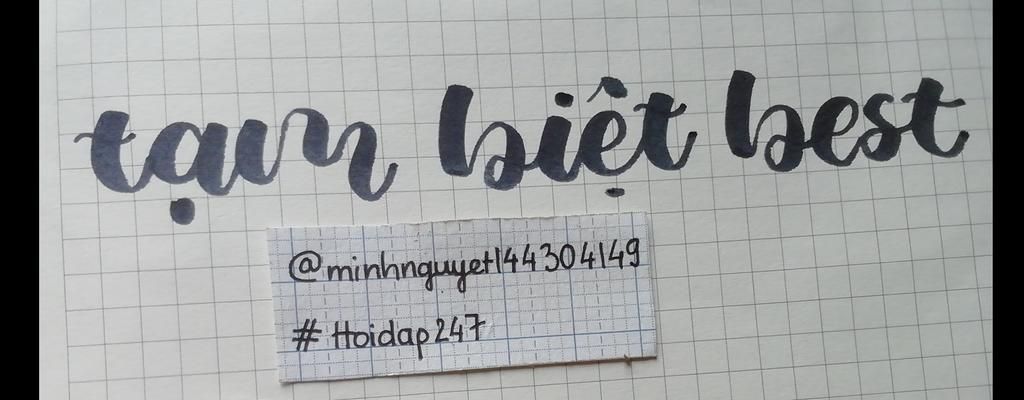 tạm biệt best
@minhnguyet144304149
# Hoidap247